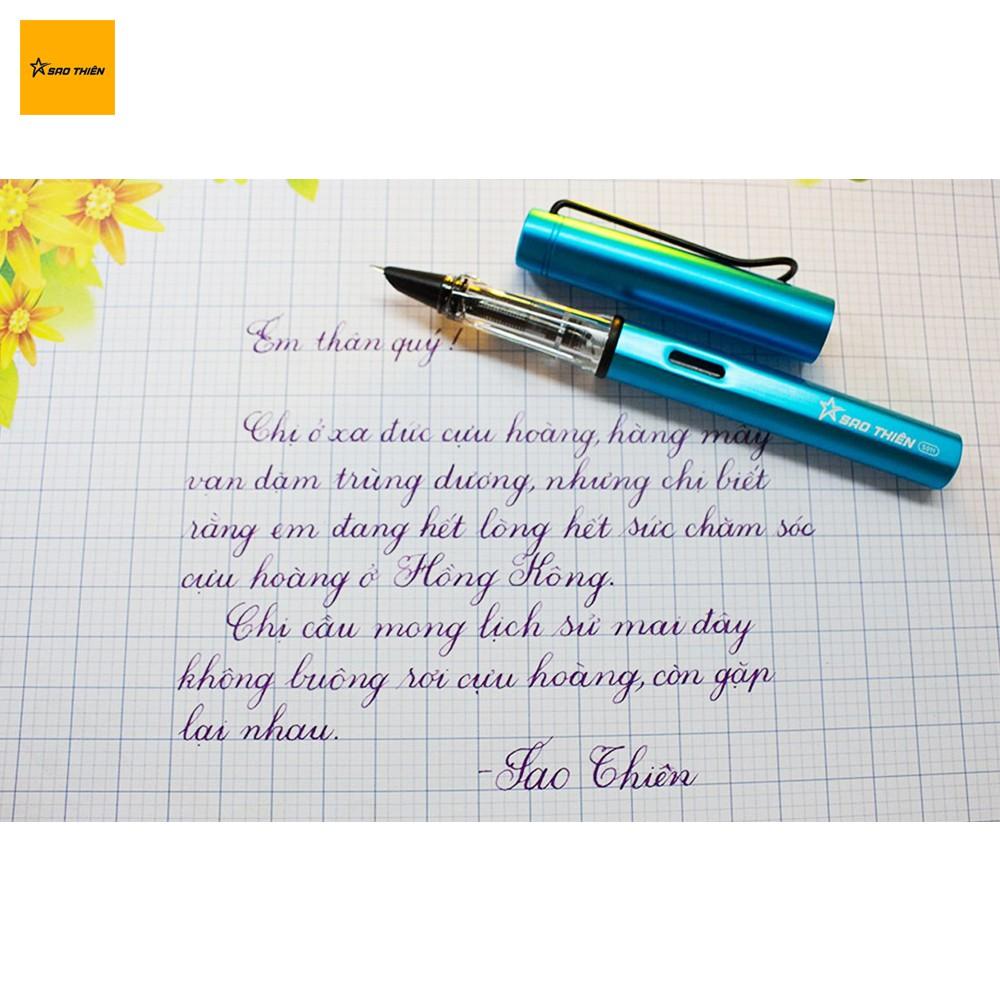 SAO THIÊN
Em thân quý!
Chị ở xa đức cựu hoàng, hàng mấy
SAO THIÊN
vạn dặm trùng dương, nhưng chị biết
rằng em đang hết lòng hết sức chăm sóc
cựu hoàng ở Hồng Kông.
Chị cầu mong lịch sử mai đây
không buông rơi cựu hoàng, còn gặp
lại nhau.
-Sao Thiên